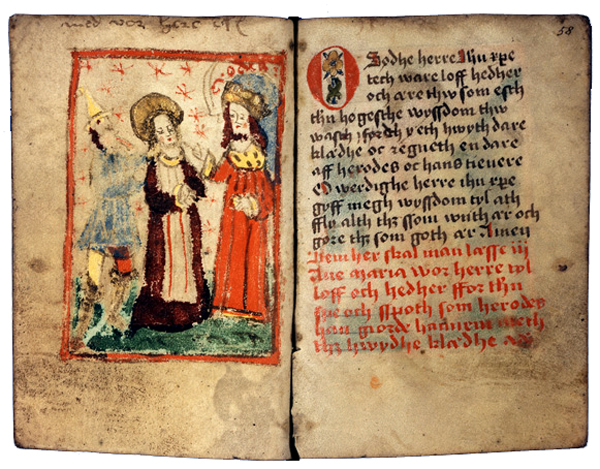 med vor here
58
O Sodhe herre Ihū xpe
tech ware loff hedher
och ære thw som esth
thn hogesche wyssdom thw
wasth i fordh y eth hwyth dare
klædhe oc regneth en dare
aff herodes oc hans tienere
O werdighe herre ihū xpe
gyff megh wyssdom tyl ath
ffly alth thz ssom wnth ær och
gøre thz som goth ær Amen
Item her skal man læsse iij
Aue maria wor herre tyl
loff och hedher ffor thn
spe och sspoth som herodes
han giorde hannem meth
thz hwydhe klædhe